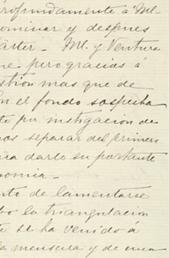 profundamente á Mt.
ominar y despues
arter. Mt. y Ventura
ne, pero gracias á
stion mas que de
n el fondo sospecha
to por instigacion de
nos separar del primero
ra darle su pasante
nomia.
to de lamentarse
bo la triangulacion
te se ha venido á
la mensura y de una